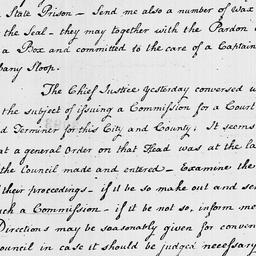 State Prison – Send me also a number of Wax
the Seal – they may together with the Pardon
a Box and committed to the care of a Captain
bany Sloop.
The Chief Justice Yesterday conversed w
the subject of issuing a Commission for a Court
d Terminer for this City and County. It seems
at a general Order on that Head was at the la
the Council made and entered – Examine the
their proceedings – if it be so make out and sen
ch a Commission – if it be not so, inform me
Directions may be seasonably given for conven
ouncil in case it should be judged necessary